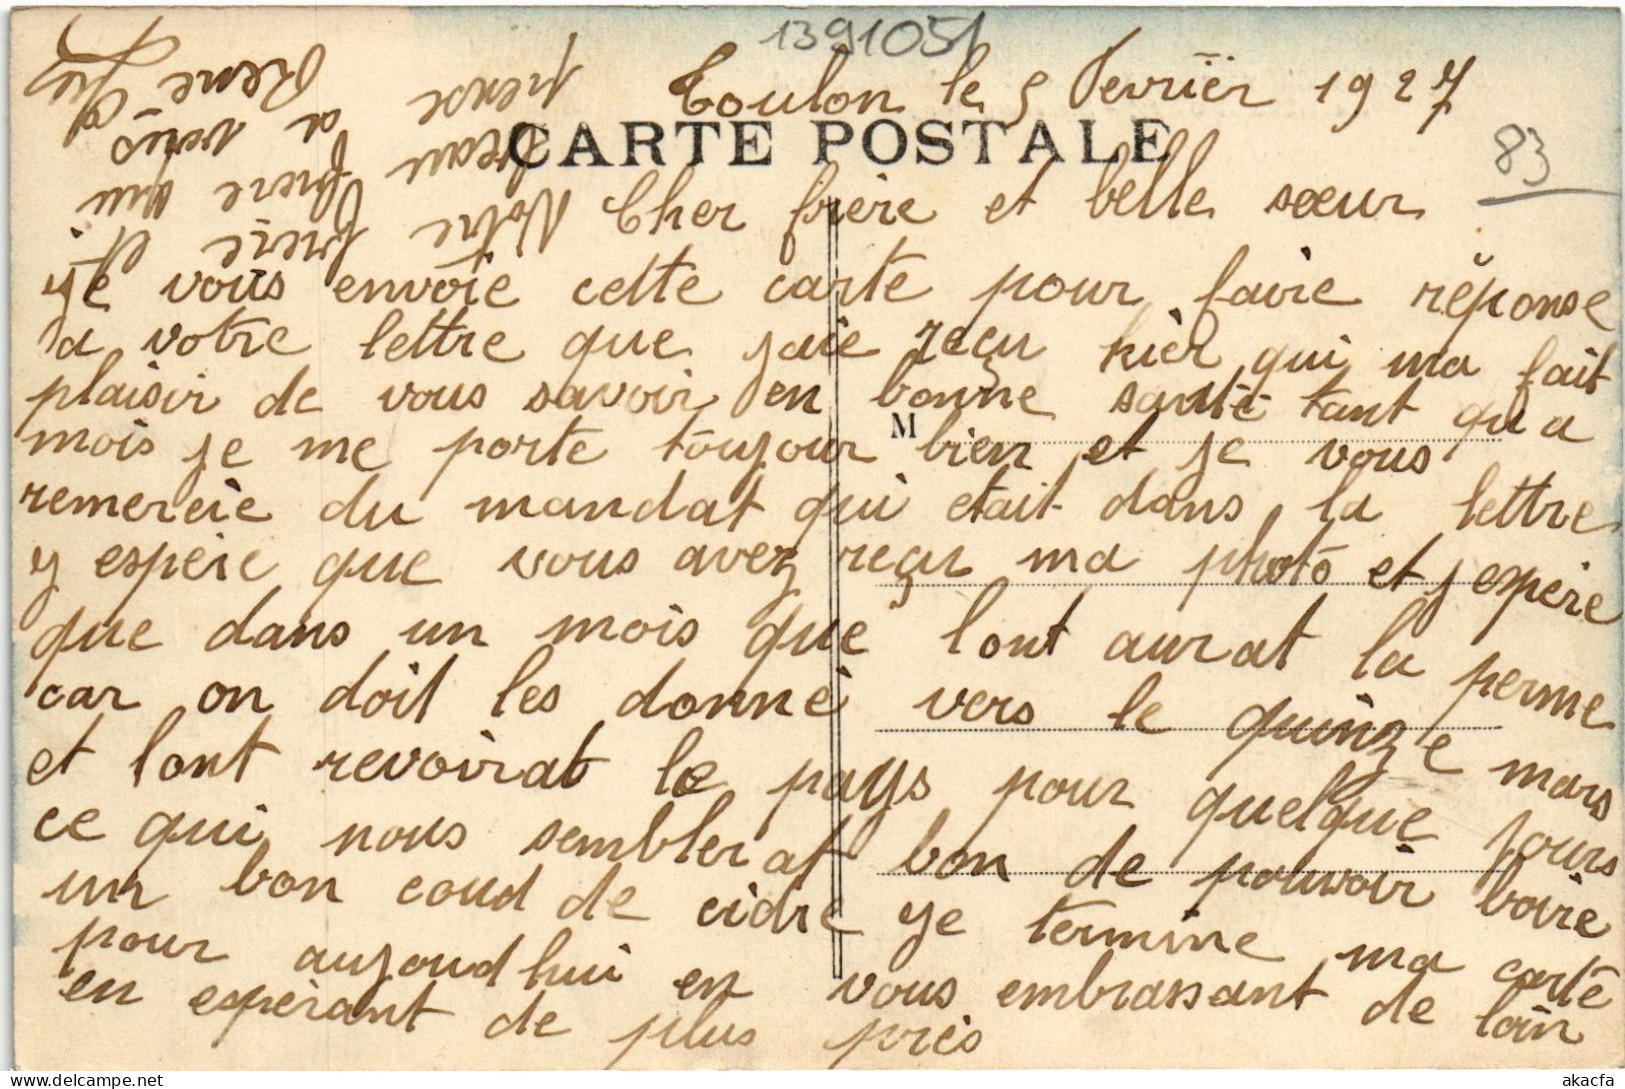 1391051
Toulon le 5 Fevriër 1927
CARTE POSTALE
83
Cher frère et belle sœur
Je vous envoie cette carte pour faire réponse
a votre lettre que jaie reçu hier qui ma fait
plaisir de vous savoir en bonne santé tant qu a
M
mois je me porte toujour bien et je vous
remercie du mandat qui etait dans la lettre
y espère que vous avez reçu ma photo et j espère
que dans un mois que lont aurat la perme
car on doit les donné vers le quinze mars
et lont revoirat le pays pour quelque jours
ce qui nous semblerat bon de pouvoir boire
un bon coud de cidre je termine ma carte
pour aujoud hui en vous embrassant de loin
en espérant de plus près
Notre frère et
beau frère qui
pense a vous
René
akacfa